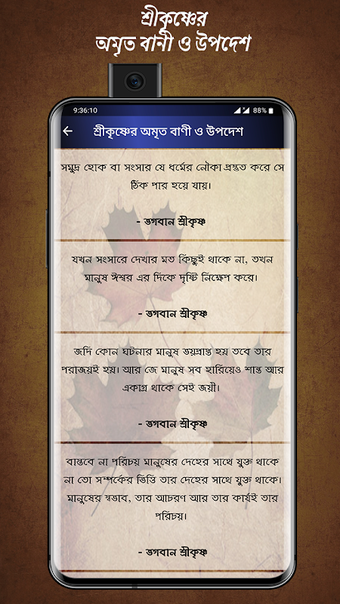 শ্রীকৃষ্ণের
অমৃত বানী ও উপদেশ
9:36:10
88%
শ্রীকৃষ্ণের অমৃত বাণী ও উপদেশ
সমুদ্র হোক বা সংসার যে ধর্মের নৌকা প্রস্তত করে সে
ঠিক পার হয়ে যায়।
- ভগবান শ্রীকৃষ্ণ
যখন সংসারে দেখার মত কিছুই থাকে না, তখন
মানুষ ঈশ্বর এর দিকে দৃষ্টি নিক্ষেপ করে।
- ভগবান শ্রীকৃষ্ণ
জদি কোন ঘটনার মানুষ ভয়প্রাপ্ত হয় তবে তার
পরাজয়ই হয়। আর জে মানুষ সব হারিয়েও শান্ত আর
একাগ্র থাকে সেই জয়ী।
- ভগবান শ্রীকৃষ্ণ
বাস্তবে না পরিচয় মানুষের দেহের সাথে যুক্ত থাকে
না তো সম্পর্কের ভিত্তি তার দেহের সাথে যুক্ত থাকে।
মানুষের স্বভাব, তার আচরণ আর তার কার্যই তার
পরিচয়।
- ভগবান শ্রীকৃষ্ণ